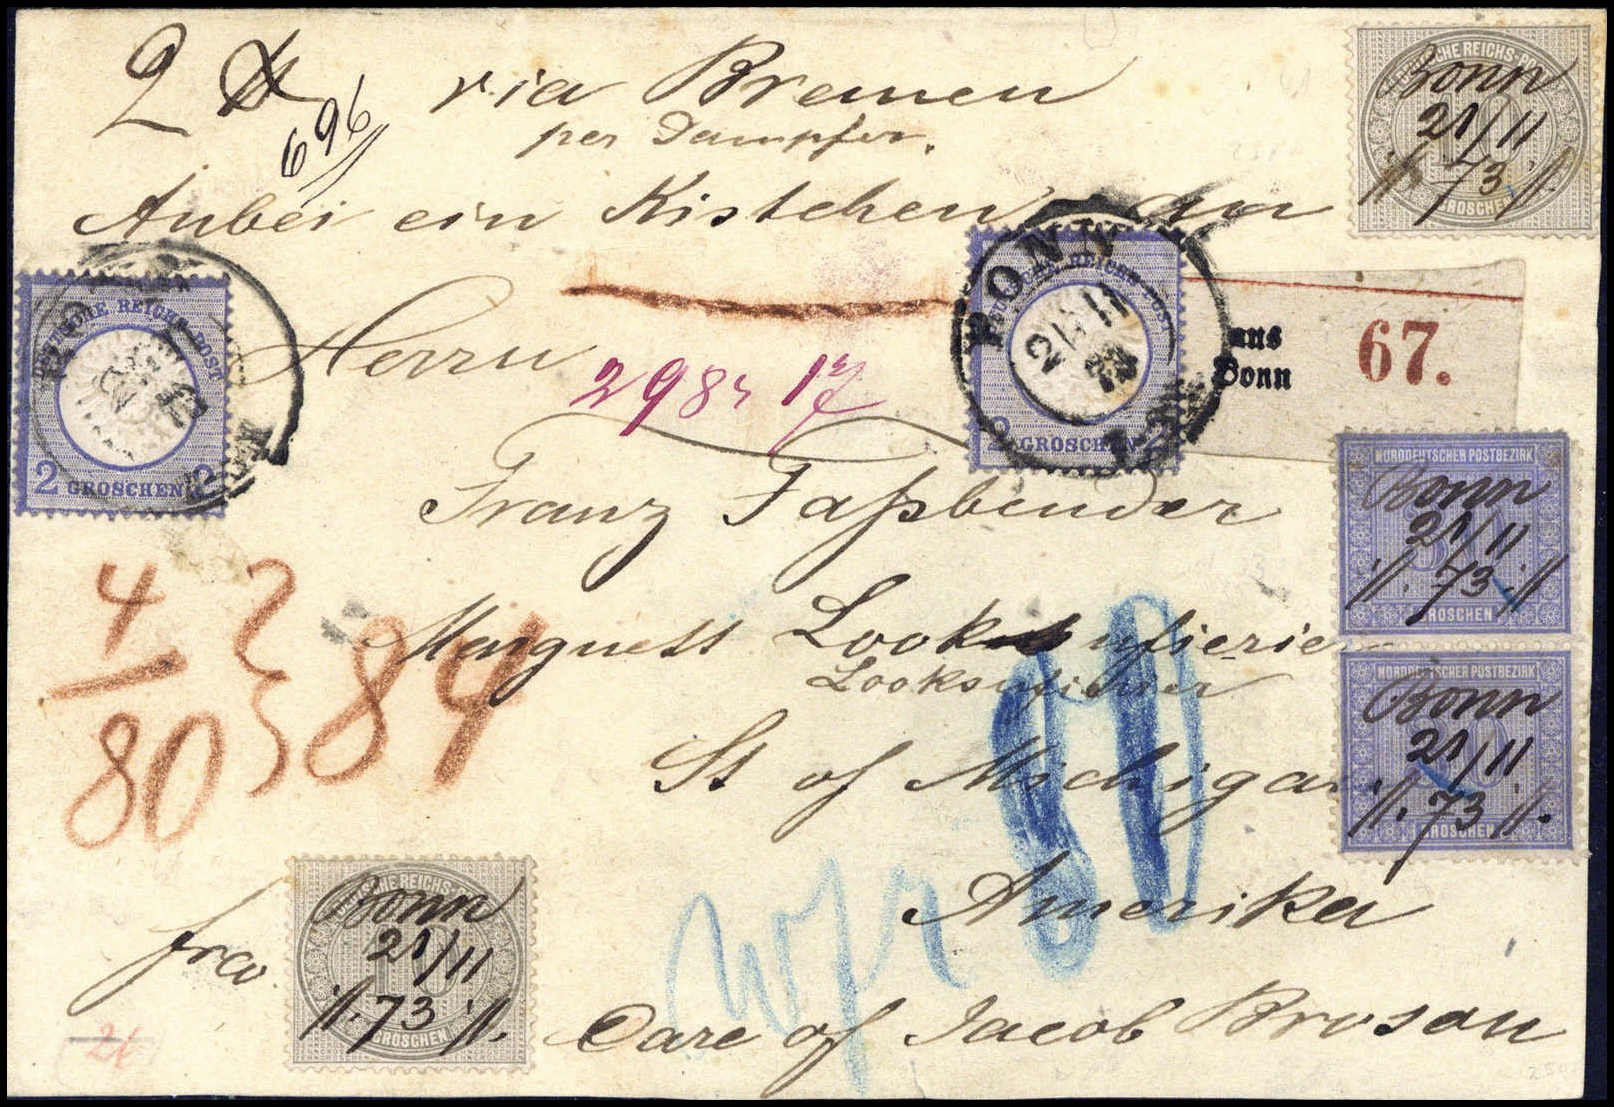 2 ℔ via Bremen
696
per Dampfer.
Anbei ein Kistchen an
Herrn
298 17
Franz Faßbender
Marquett
St of Michigan
Amerika
Care of Jacob Brosan
frco
4
80
84
wfr 80
26
aus
Bonn
67.
BONN
21 11
73
DEUTSCHE REICHS-POST
2 GROSCHEN 2
DEUTSCHE REICHS-POST
2 GROSCHEN 2
DEUTSCHE REICHS-POST
10
GROSCHEN
Bonn
21/11
73
NORDDEUTSCHER POSTBEZIRK
30
GROSCHEN
Bonn
21/11
73
NORDDEUTSCHER POSTBEZIRK
30
GROSCHEN
Bonn
21/11
73
DEUTSCHE REICHS-POST
10
GROSCHEN
Bonn
21/11
73